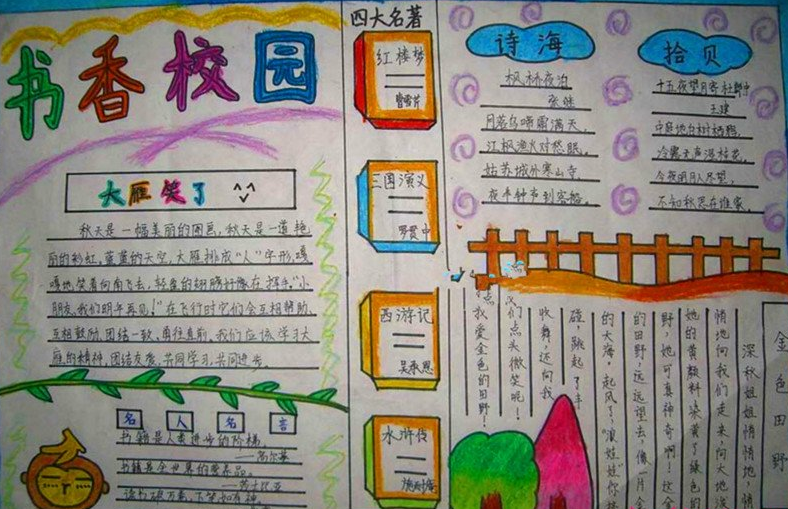 书香校园
大雁笑了 ^ ^
秋天是一幅美丽的图画，秋天是一道艳
丽的彩虹，蓝蓝的天空，大雁排成“人”字形，嘎
嘎地笑着向南飞去，轻盈的翅膀好像在挥手。“小
朋友，我们明年再见！”在飞行时它们会互相帮助、
互相鼓励，团结一致，勇往直前，我们应该学习大
雁的精神，团结友爱，共同学习，共同进步。
名人名言
书籍是人类进步的阶梯。
——高尔基
书籍是全世界的营养品。
——莎士比亚
读书破万卷，下笔如有神
四大名著
红楼梦
曹雪芹
三国演义
罗贯中
西游记
吴承恩
水浒传
施耐庵
诗海
枫桥夜泊
张继
月落乌啼霜满天，
江枫渔火对愁眠。
姑苏城外寒山寺，
夜半钟声到客船。
拾贝
十五夜望月寄杜郎中
王建
中庭地白树栖鸦，
冷露无声湿桂花。
今夜月明人尽望，
不知秋思在谁家。
金色田野
深秋姐姐悄悄地，悄
悄地向我们走来，向大地泼
她的黄颜料装黄了绿色的
野，她可真神奇啊！这金
的田野，远远望去，像一片金
的大海。起风了，“浪娃娃”你
碰，跳起了丰
收舞，还向我
们点头微笑呢！
我爱金色的田野！